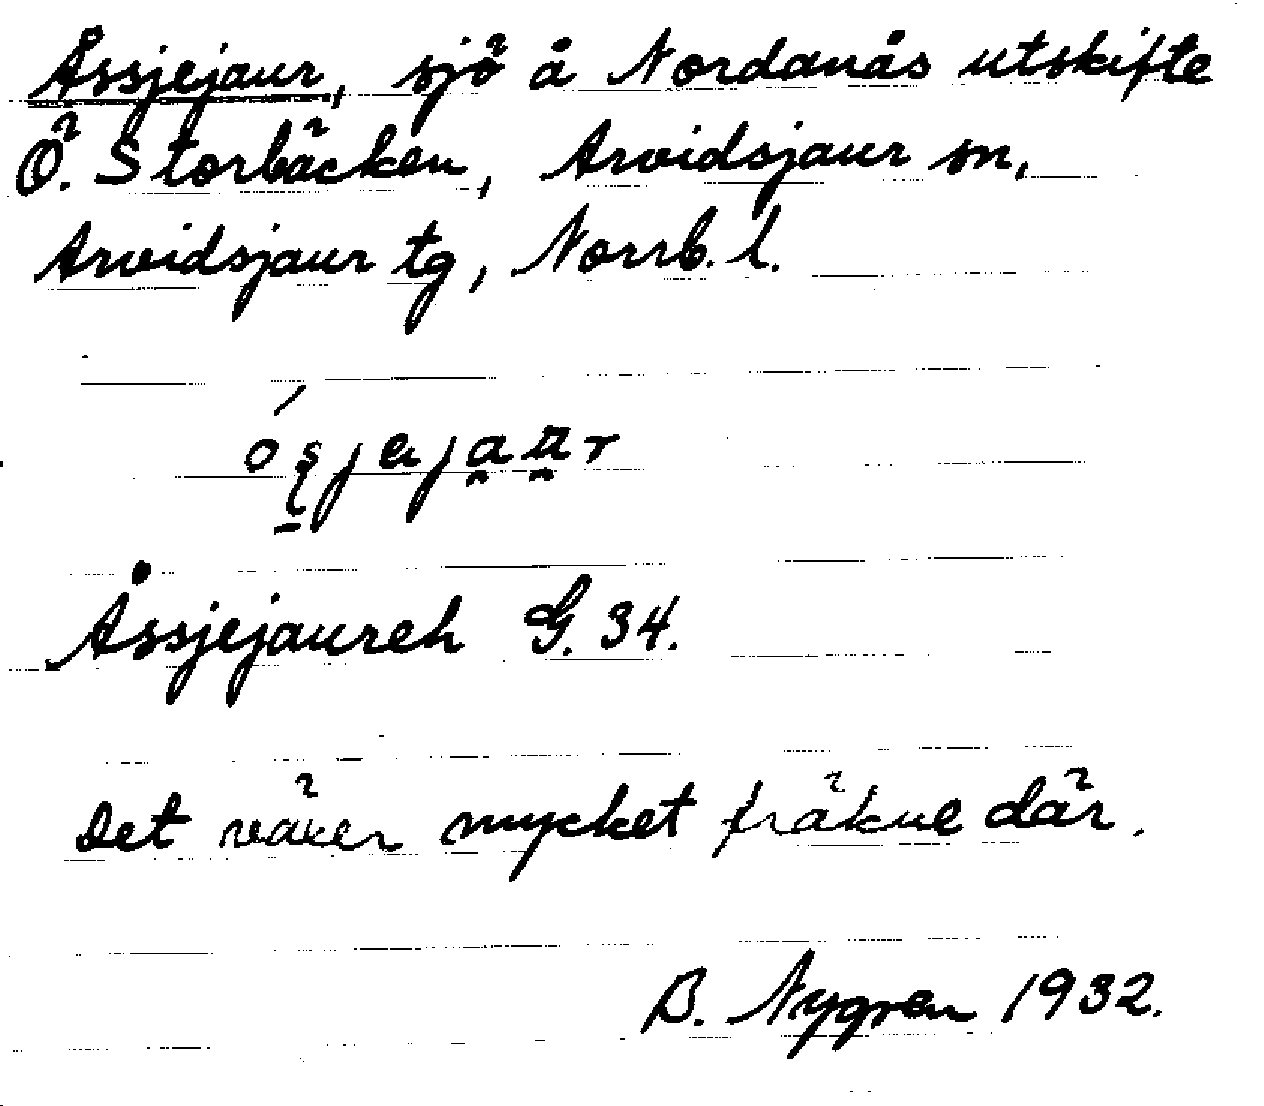 Åssjejaur, sjö å Nordanås utskifte
Ö. Storbäcken, Arvidsjaur sn,
Arvidsjaur tg, Norrb. l.
Åssjejaureh G. 34.
Det växer mycket fräkne där.
B. Nygren 1932.